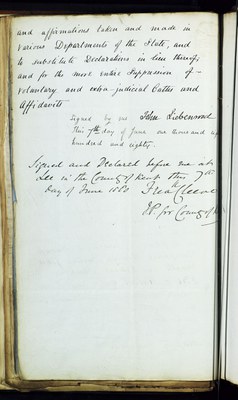 and affirmations taken and made in
various Departments of the State, and
to substitute Declarations in lieu thereof,
and for the more entire Suppression of
voluntary and extra-judicial Oaths and
Affidavits.
Signed by me John Liebenrood
This 7th day of June one thousand
hundred and eighty.
Signed and Declared before me at
Lee in the County of Kent this 7th
day of June 1880
Fredk Cleeve
JP for County of